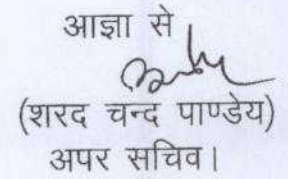 आज्ञा से
(शरद चन्द पाण्डेय)
अपर सचिव।